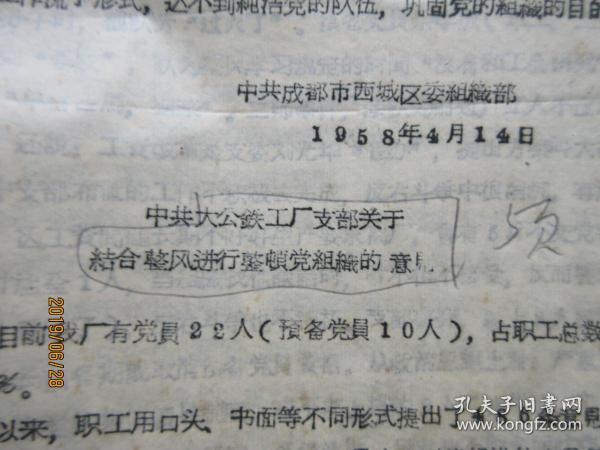 流于形式，达不到純洁党的队伍，巩固党的組織的目的
中共成都市西城区委組織部
1958年4月14日
中共大公鉄工厂支部关于
結合整风进行整頓党組織的意見
目前我厂有党員22人（預备党員10人），占职工总数
%。
以来，职工用口头、书面等不同形式提出了
意見
2019/06/28
孔夫子旧书网
www.kongfz.com